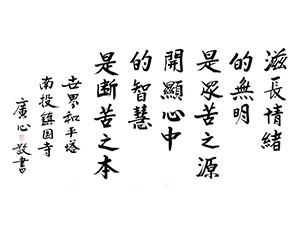 滋長情緒
的無明
是眾苦之源
開顯心中
的智慧
是断苦之本
世界和平塔
南投鎮国寺
廣心敬書